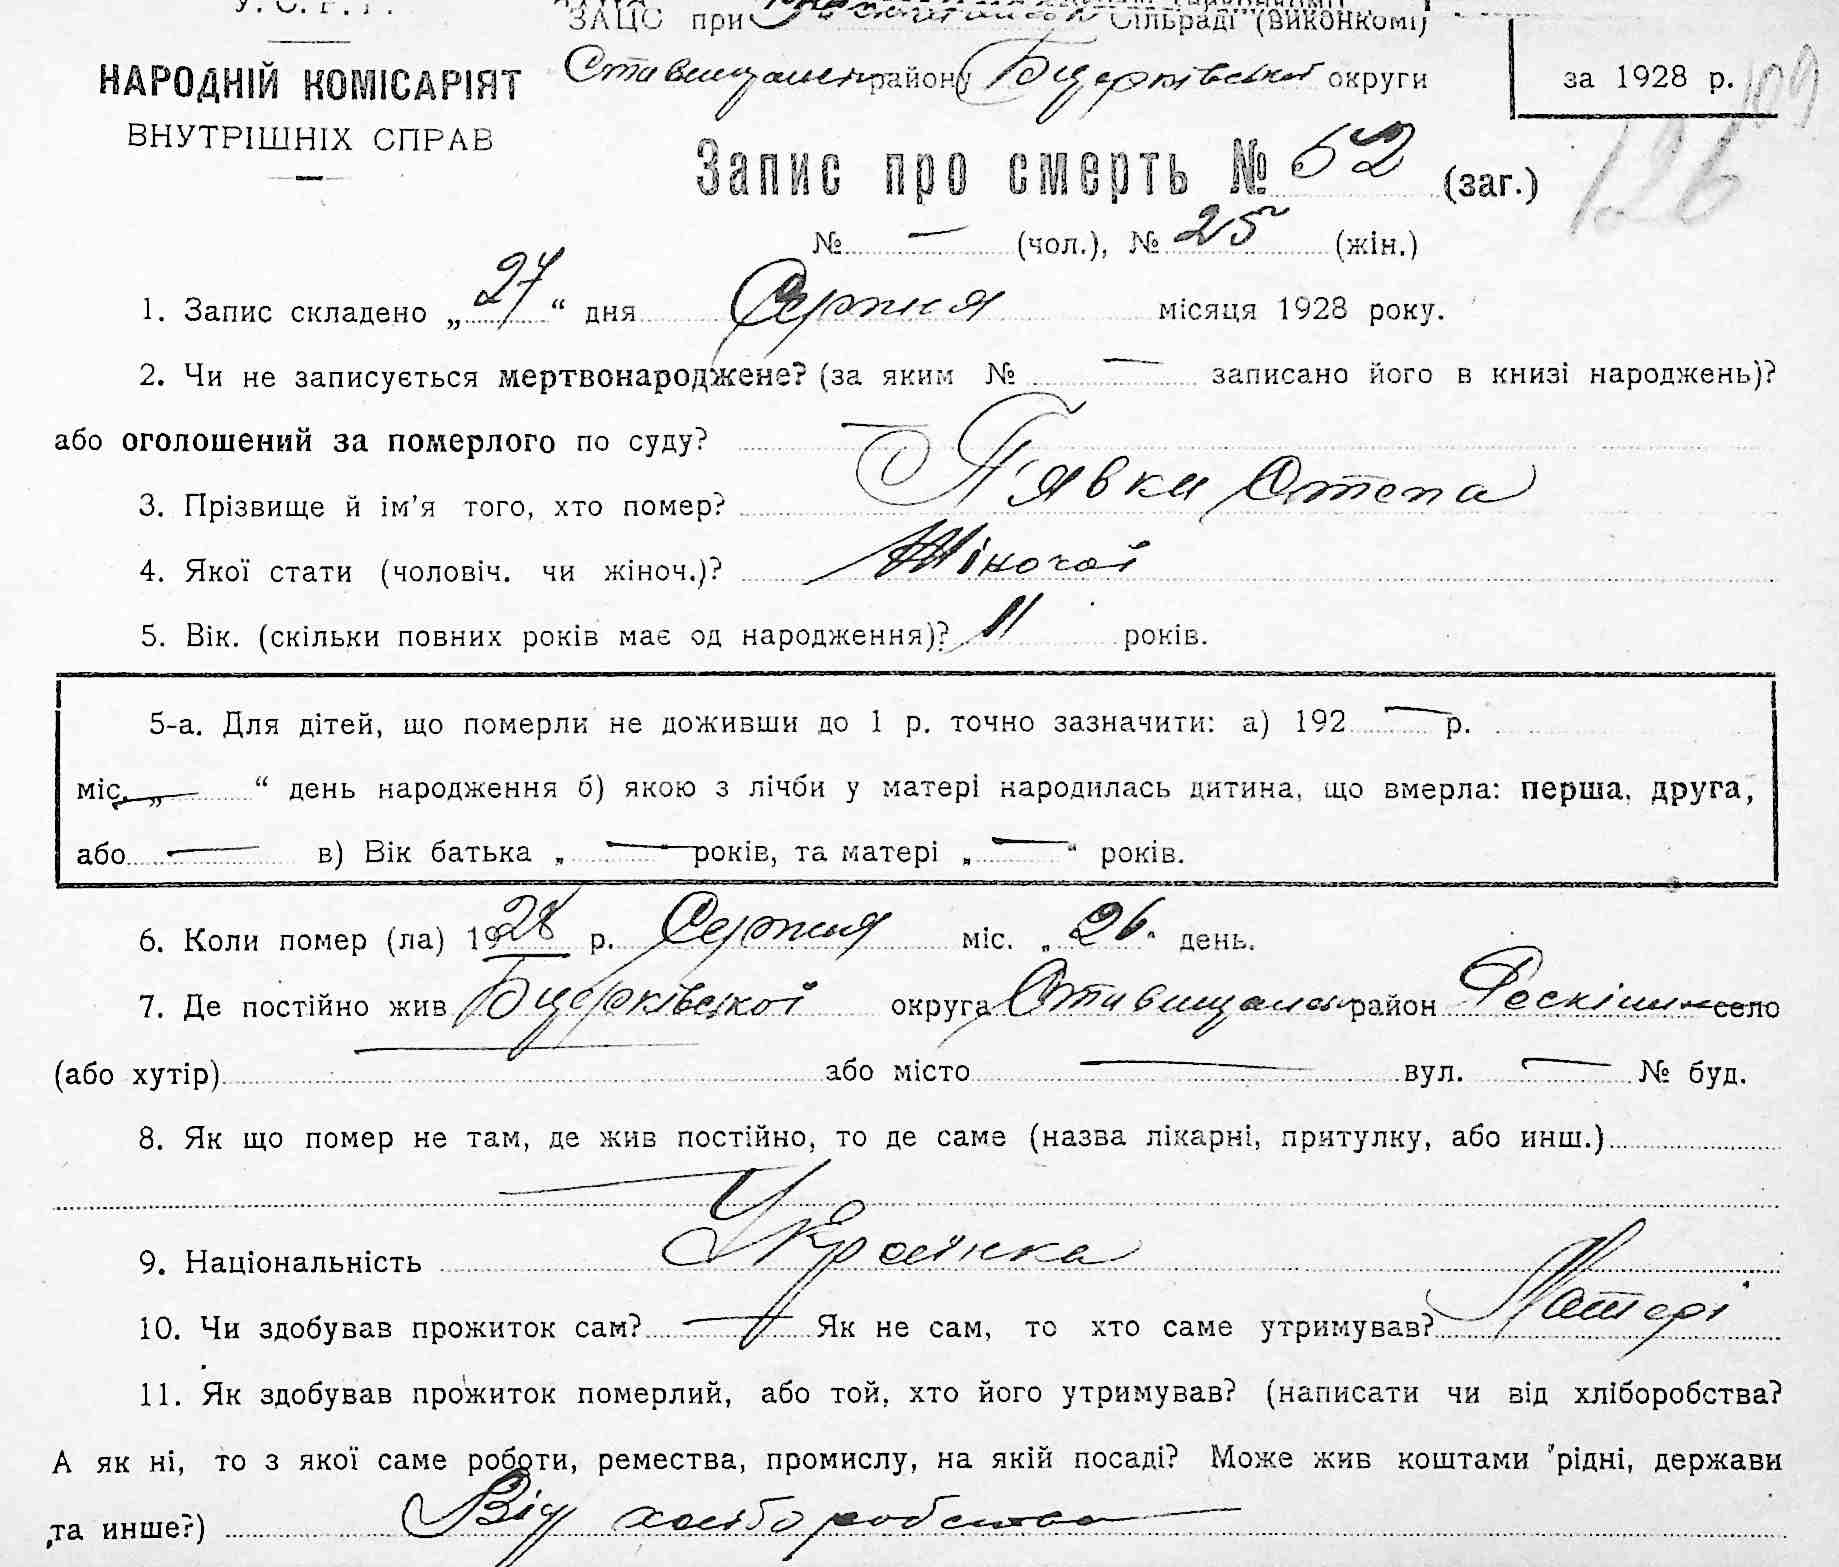 У. С. Р. Р.
ЗАЦС при Сільраді (виконкомі)
НАРОДНІЙ КОМІСАРІЯТ
ВНУТРІШНІХ СПРАВ
Ставищанськ району Біцерківської округи
за 1928 р.
109
126
Запис про смерть № 52 (заг.)
№ — (чол.), № 25 (жін.)
1. Запис складено „27“ дня Серпня місяця 1928 року.
2. Чи не записується мертвонароджене? (за яким № — записано його в книзі народжень)?
або оголошений за померлого по суду? —
3. Прізвище й ім'я того, хто помер? П'явки Степа
4. Якої стати (чоловіч. чи жіноч.)? Жіночої
5. Вік. (скільки повних років має од народження)? 11 років.
5-а. Для дітей, що померли не доживши до 1 р. точно зазначити: а) 192 — р.
міс. „ — “ день народження б) якою з лічби у матері народилась дитина, що вмерла: перша, друга,
або — в) Вік батька „ — “ років, та матері „ — “ років.
6. Коли помер (ла) 1928 р. Серпня міс. „26“ день.
7. Де постійно жив Біцерківської округа Ставищанськ район село
(або хутір) — або місто — вул. — № буд.
8. Як що помер не там, де жив постійно, то де саме (назва лікарні, притулку, або инш.)
—
9. Національність Українка
10. Чи здобував прожиток сам? — Як не сам, то хто саме утримував? Матері
11. Як здобував прожиток померлий, або той, хто його утримував? (написати чи від хліборобства?
А як ні, то з якої саме роботи, ремества, промислу, на якій посаді? Може жив коштами рідні, держави
та инше?) Від хліборобства